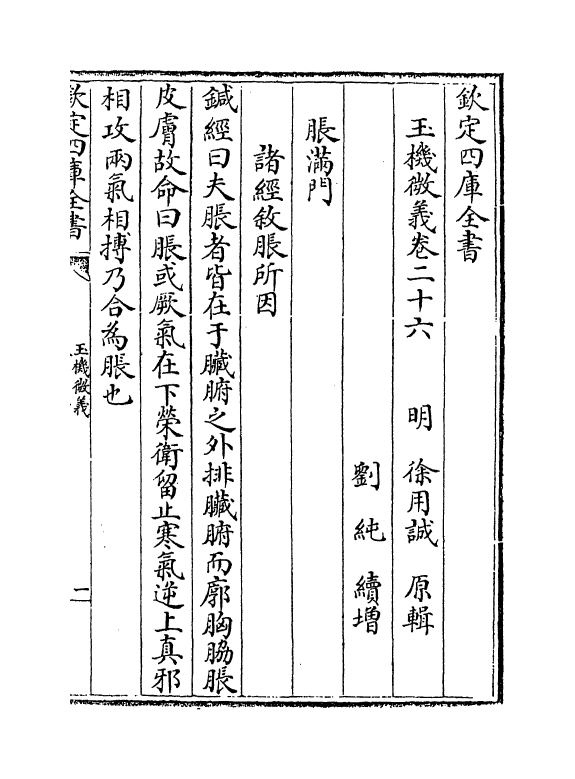 欽定四庫全書
玉機微義卷二十六　明　徐用誠　原輯
劉　純　續增
脹滿門
諸經敘脹所因
鍼經曰夫脹者皆在于臟腑之外排臟腑而廓胸脇脹
皮膚故命曰脹或厥氣在下榮衛留止寒氣逆上真邪
相攻兩氣相搏乃合為脹也
欽定四庫全書
玉機微義
二